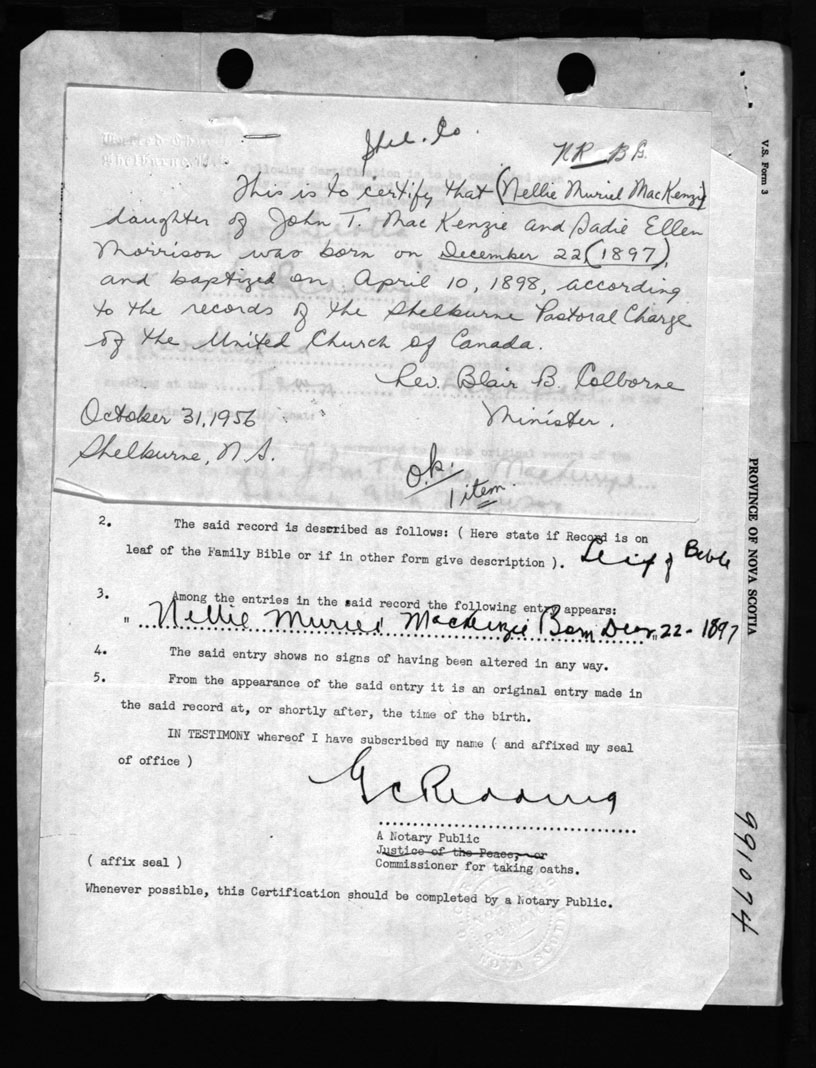 Shel. Co.
NR BG.
This is to certify that (Nellie Muriel MacKenzie)
daughter of John T. MacKenzie and Sadie Ellen
Morrison was born on December 22 (1897),
and baptized on April 10, 1898, according
to the records of the Shelburne Pastoral Charge
of the United Church of Canada.
Rev. Blair B. Colborne
Minister.
October 31, 1956
Shelburne, N.S.
o.k.
1 item
2. The said record is described as follows: ( Here state if Record is on
leaf of the Family Bible or if in other form give description ). Leaf of Bible
3. Among the entries in the said record the following entry appears:
" Nellie Muriel MacKenzie Born Decr "22 - 1897
4. The said entry shows no signs of having been altered in any way.
5. From the appearance of the said entry it is an original entry made in
the said record at, or shortly after, the time of the birth.
IN TESTIMONY whereof I have subscribed my name ( and affixed my seal
of office )
G C Redding
A Notary Public
Justice of the Peace, or
( affix seal )
Commissioner for taking oaths.
Whenever possible, this Certification should be completed by a Notary Public.
NOVA SCOTIA
V.S. Form 3
PROVINCE OF NOVA SCOTIA
991074